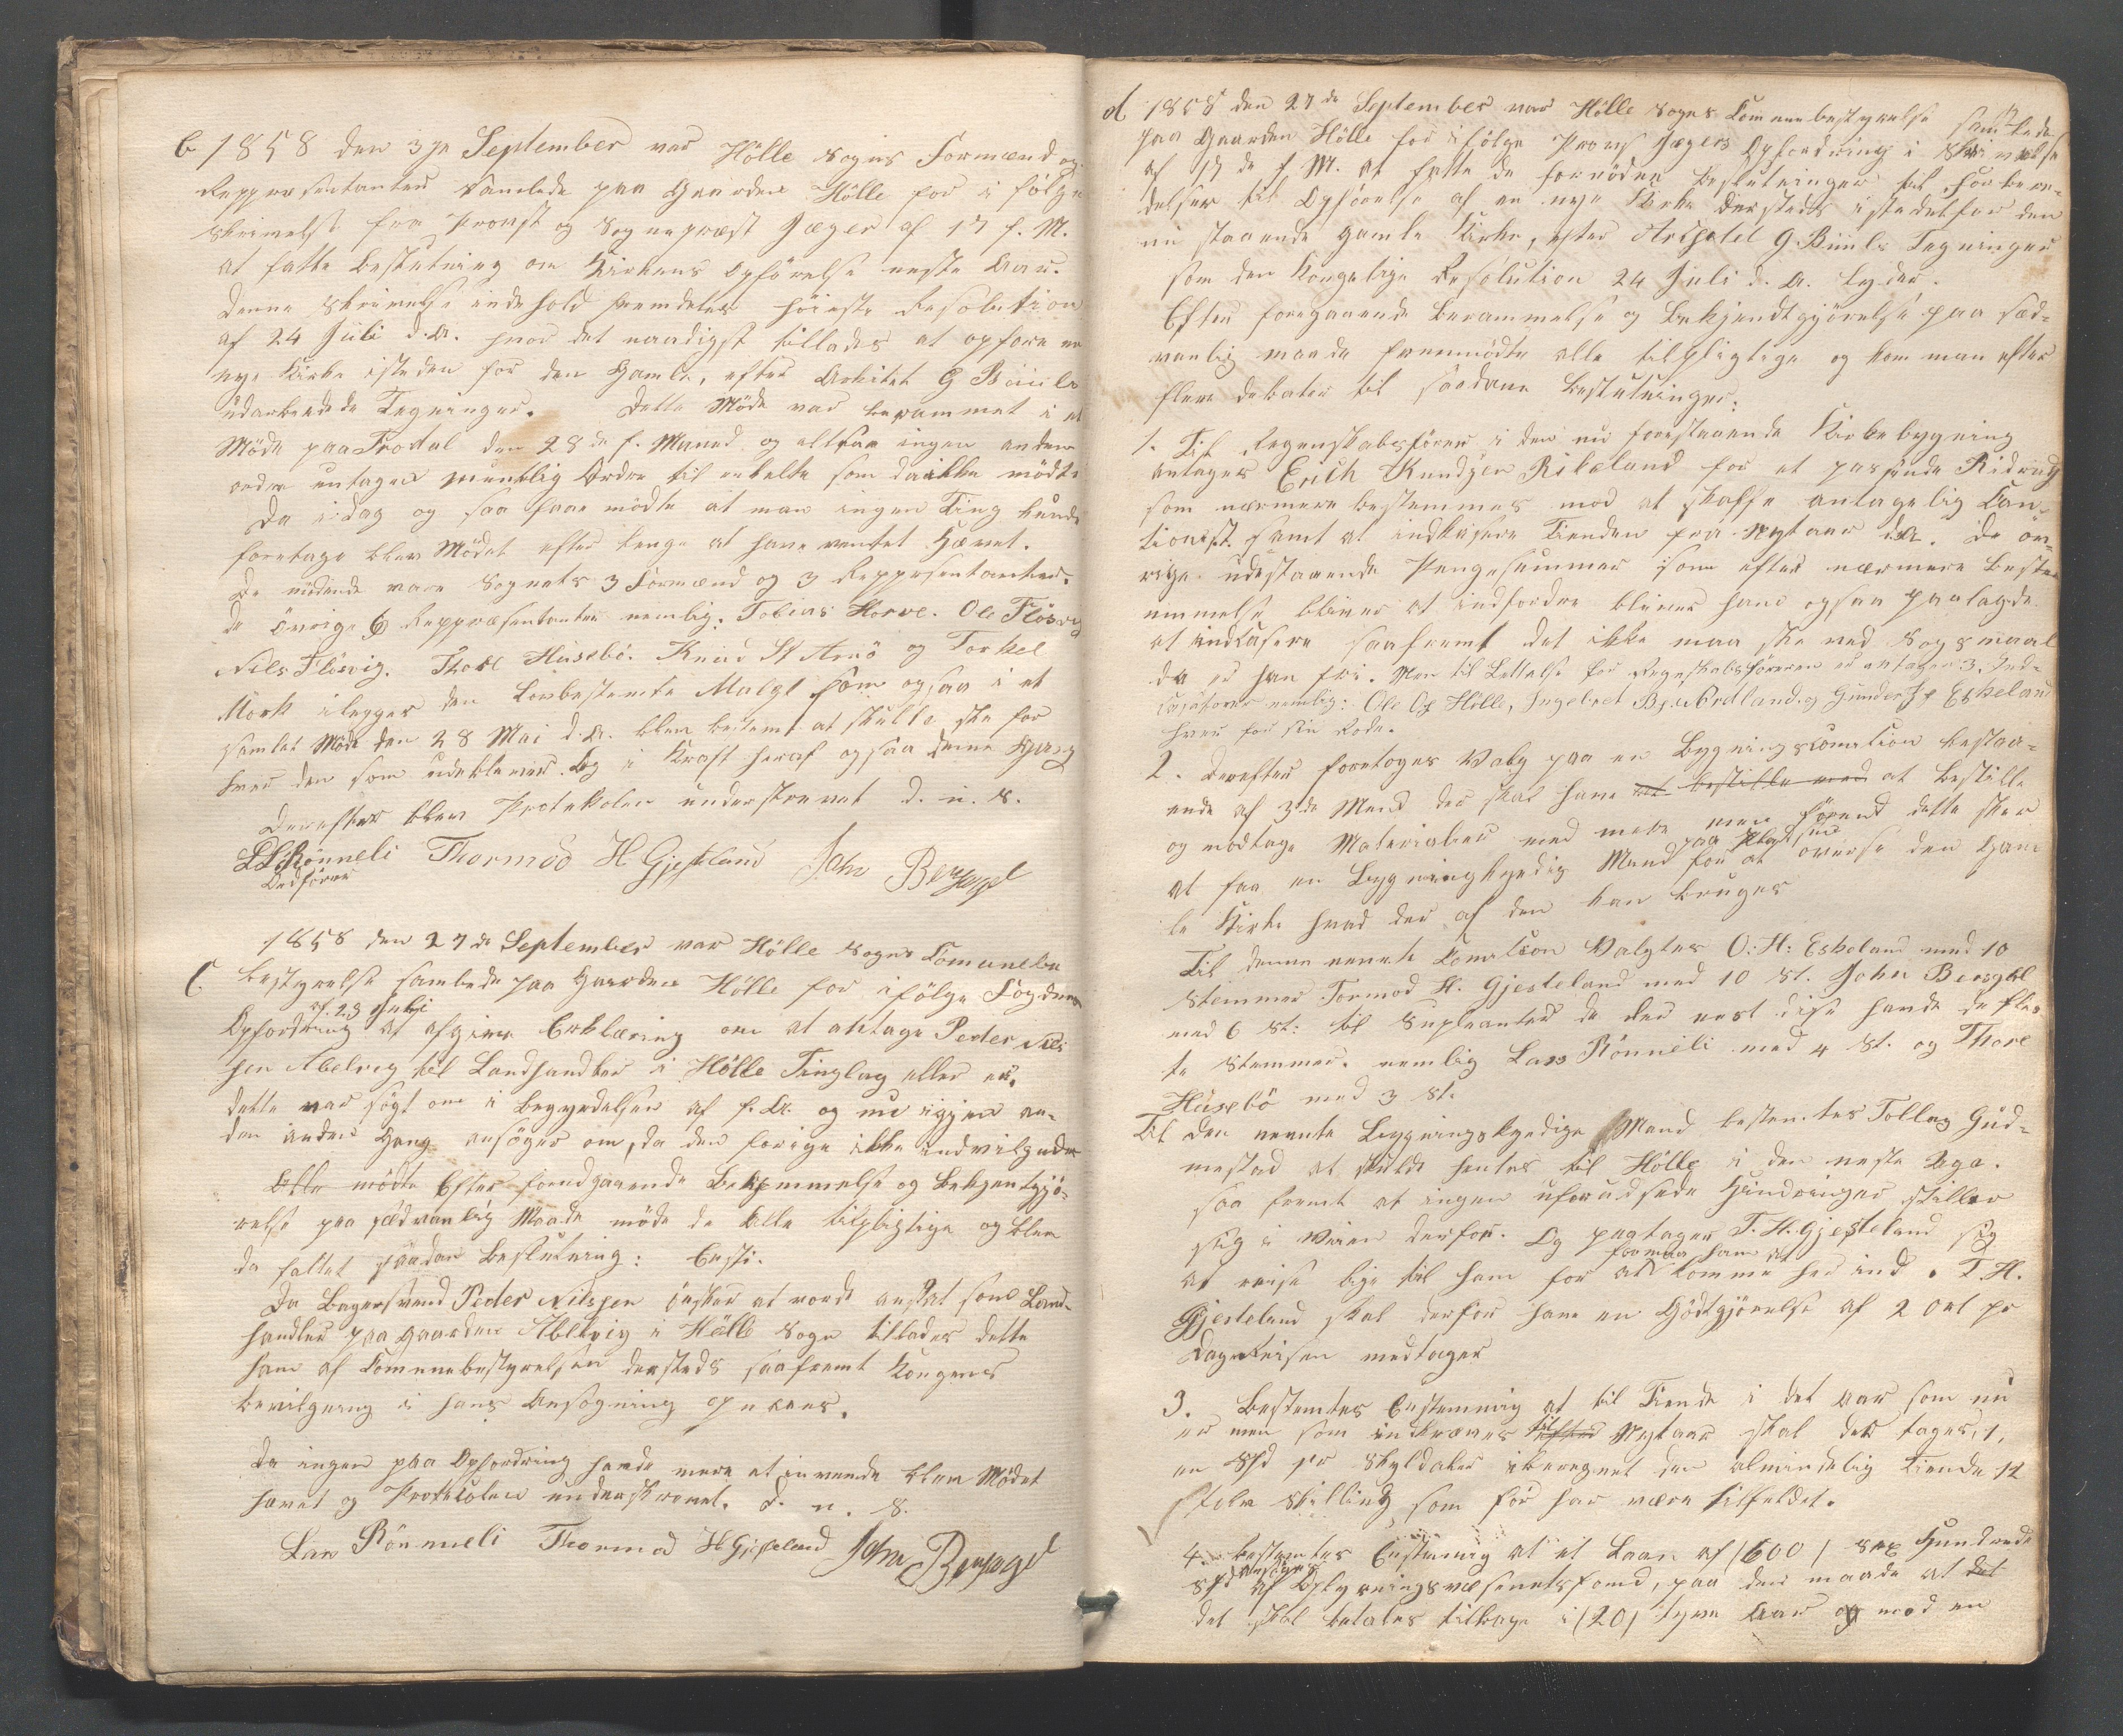 b 1858 den 3je September var Hölle Sogns Formænd og
Repræsentanter samlede paa Gaarden Hölle for i fölge
skrivelse fra Provst og Sognepræst Jæger af 17 f. M.
at fatte Beslutning om Kirkens Opförelse neste Aar.
Denne skrivelse indeholdt fremdeles höieste Resolution
af 24 Juli d. A. hvor det naadigst tillades at opföre en
nye Kirke isteden for den Gamle, efter Arkitekt G Büüls
udarbeidede Tegninger. Dette Möde var berammet i et
Möde paa Frodal den 28de f. Maaned og altsaa ingen anden
ordre untagen muntlig Ordre til enkelte som da ikke mödte
Da i dag og saa faae mödte at man ingen Ting kunde
foretage blev Mödet efter lenge at have ventet Hævet.
De mödende vare Sognets 3 Formænd og 3 Reppresentanter.
de övrige 6 Reppræsentanter nemlig: Tobias Horve. Ole Flösvig
Nils Flösvig. Thore Husebö. Knud St Arnö og Torkel
Mörk ilegges den Lovbestemte Mulgt som ogsaa i et
samlet Möde den 28 Mai d. A. blev bestemt at skulle ske for
hver den som udebliver. Og i Kraft heraf ogsaa denne Gang
Derefter blev Protokolen understrevet d. u. s.
L L Rönneli Thormod H Gjesteland John Bersagel
Ordförer
1858 den 27de September var Hölle Sogns Comunebe
C. bestyrelse samlede paa Gaarden Hölle for ifölge Fogdens
af 23 Juli
Opfordring at afgive Erklæring om at antage Peder Nils
sen Abelvig til Landhandler i Hölle Tinglag eller ei.
dette var sögt om i Begyndelsen af f. Aar og nu igjen an-
den anden Gang ansöges om, da den forige ikke indvilgede
Efter foregaaende Bekjemmelse og Bekjentgjö-
relse paa sædvanlig Maade möde de alle tilpligtige og blev
da fattet saadan Beslutning: Ensti.
Da Bagersvend Peder Nilssen önsker at vorde ansat som Land-
handler paa gaarden Abelvig i Hölle Sogn tillades dette
ham af Comunebestyrelsen dersteds saafremt Kongens
bevilgning i hans Ansögning
Da ingen paa Opfordring havde mere at invende blev Mödet
hævet og Protocolen underskrevet. d. u. s.
Lars Rönneli Thormod H Gjesteland John Bersagel
d 1858 den 27de September var Hölle Sogns Comunebestyrelse samlede
paa Gaarden Hölle for ifölge Provst Jægers Opfordring i Skrivelse
af 17 de f. M. at fatte de fornödne Beslutninger til forbere-
delser til Opförelse af en nye Kirke dersteds istedetfor den
nu staaende gamle Kirke, efter Arkitekt G. Büüls Tegninger
som den Kongelige Resolution 24 Juli d. A. lyder.
Efter foregaaende Berammelse og Bekjendtgjörelse paa sæd-
vanlig maade fremmödte alle tilpligtige og kom man efter
flere debater til saadanne Beslutninger:
1. Til Regenskabsförer i den nu forestaaende Kirkebygning
antages Erich Knudsen Rileland for et passende
som nærmere bestemmes mod at skaffe antagelig Cau-
tionist. samt at indkasere Tienden fra Nytaar d. A. De öv-
rige udestaaende Pengesummer som efter nærmere beste-
mmelse bliver at indfordre bliver ham ogsaa paalagde
at indkasere saafremt det ikke maa ske ved Sogsmaal
da er han fri. Men til Lettelse for Regnskabsföreren er antagen 3 Ind-
casatores nemlig: Ole Hölle, Ingebret Bj. Nordland og Gunder Eskeland
hver for sin Rode.
2. Derefter foretoges Valg paa en Bygningscomition bestaa-
ende af 3de Mend der skal have at bestille med at bestille
og modtage Materialier med mere men förend dette sker
paa Pladsen
at faa en Bygningkyndig Mand for at overse den gam
le Kirke hvad der af den kan bruges
Til denne nevnte Comition Valgtes O: H: Eskeland med 10
Stemmer Tormod H. Gjesteland med 10 St. John Bersagel
med 6 St: til Supleanter de der nest disse havde de fles
te Stemmer. nemlig Lars Rönneli med 4 St. og Thore
Husebö med 3 St.
Til den nevnte Bygningskyndige Mand bestemtes Tollag Gud-
mestad at skulde hentes til Hölle i den neste Uge.
saa fremt at ingen uforudsede Hindringer stiller
sig i Veien derfor. Og paatager T. H. Gjesteland sig
formaa ham at
at reise lige til ham for at komme her ind. T. H.
Gjesteland skal derfor have en Godtgjörelse af 2 Ort pr
Dag Reisen medtager
3. Bestemtes Enstemmig at til Tiende i det aar som nu
til
er men som indkræves efter Nytaar skal der tages, 1,
en Spd pr Skylddaler iberegnet den almindelig Tiende 12
tolv skilling som för har være tilfeldet.
4. Bestemtes Enstemig at et Laan af (600) Sex Hundrede
ansöges
Spd af Oplysningsvæsenetsfond, paa den maade at det
det skal betales tilbage i (20) tyve Aar og mod en